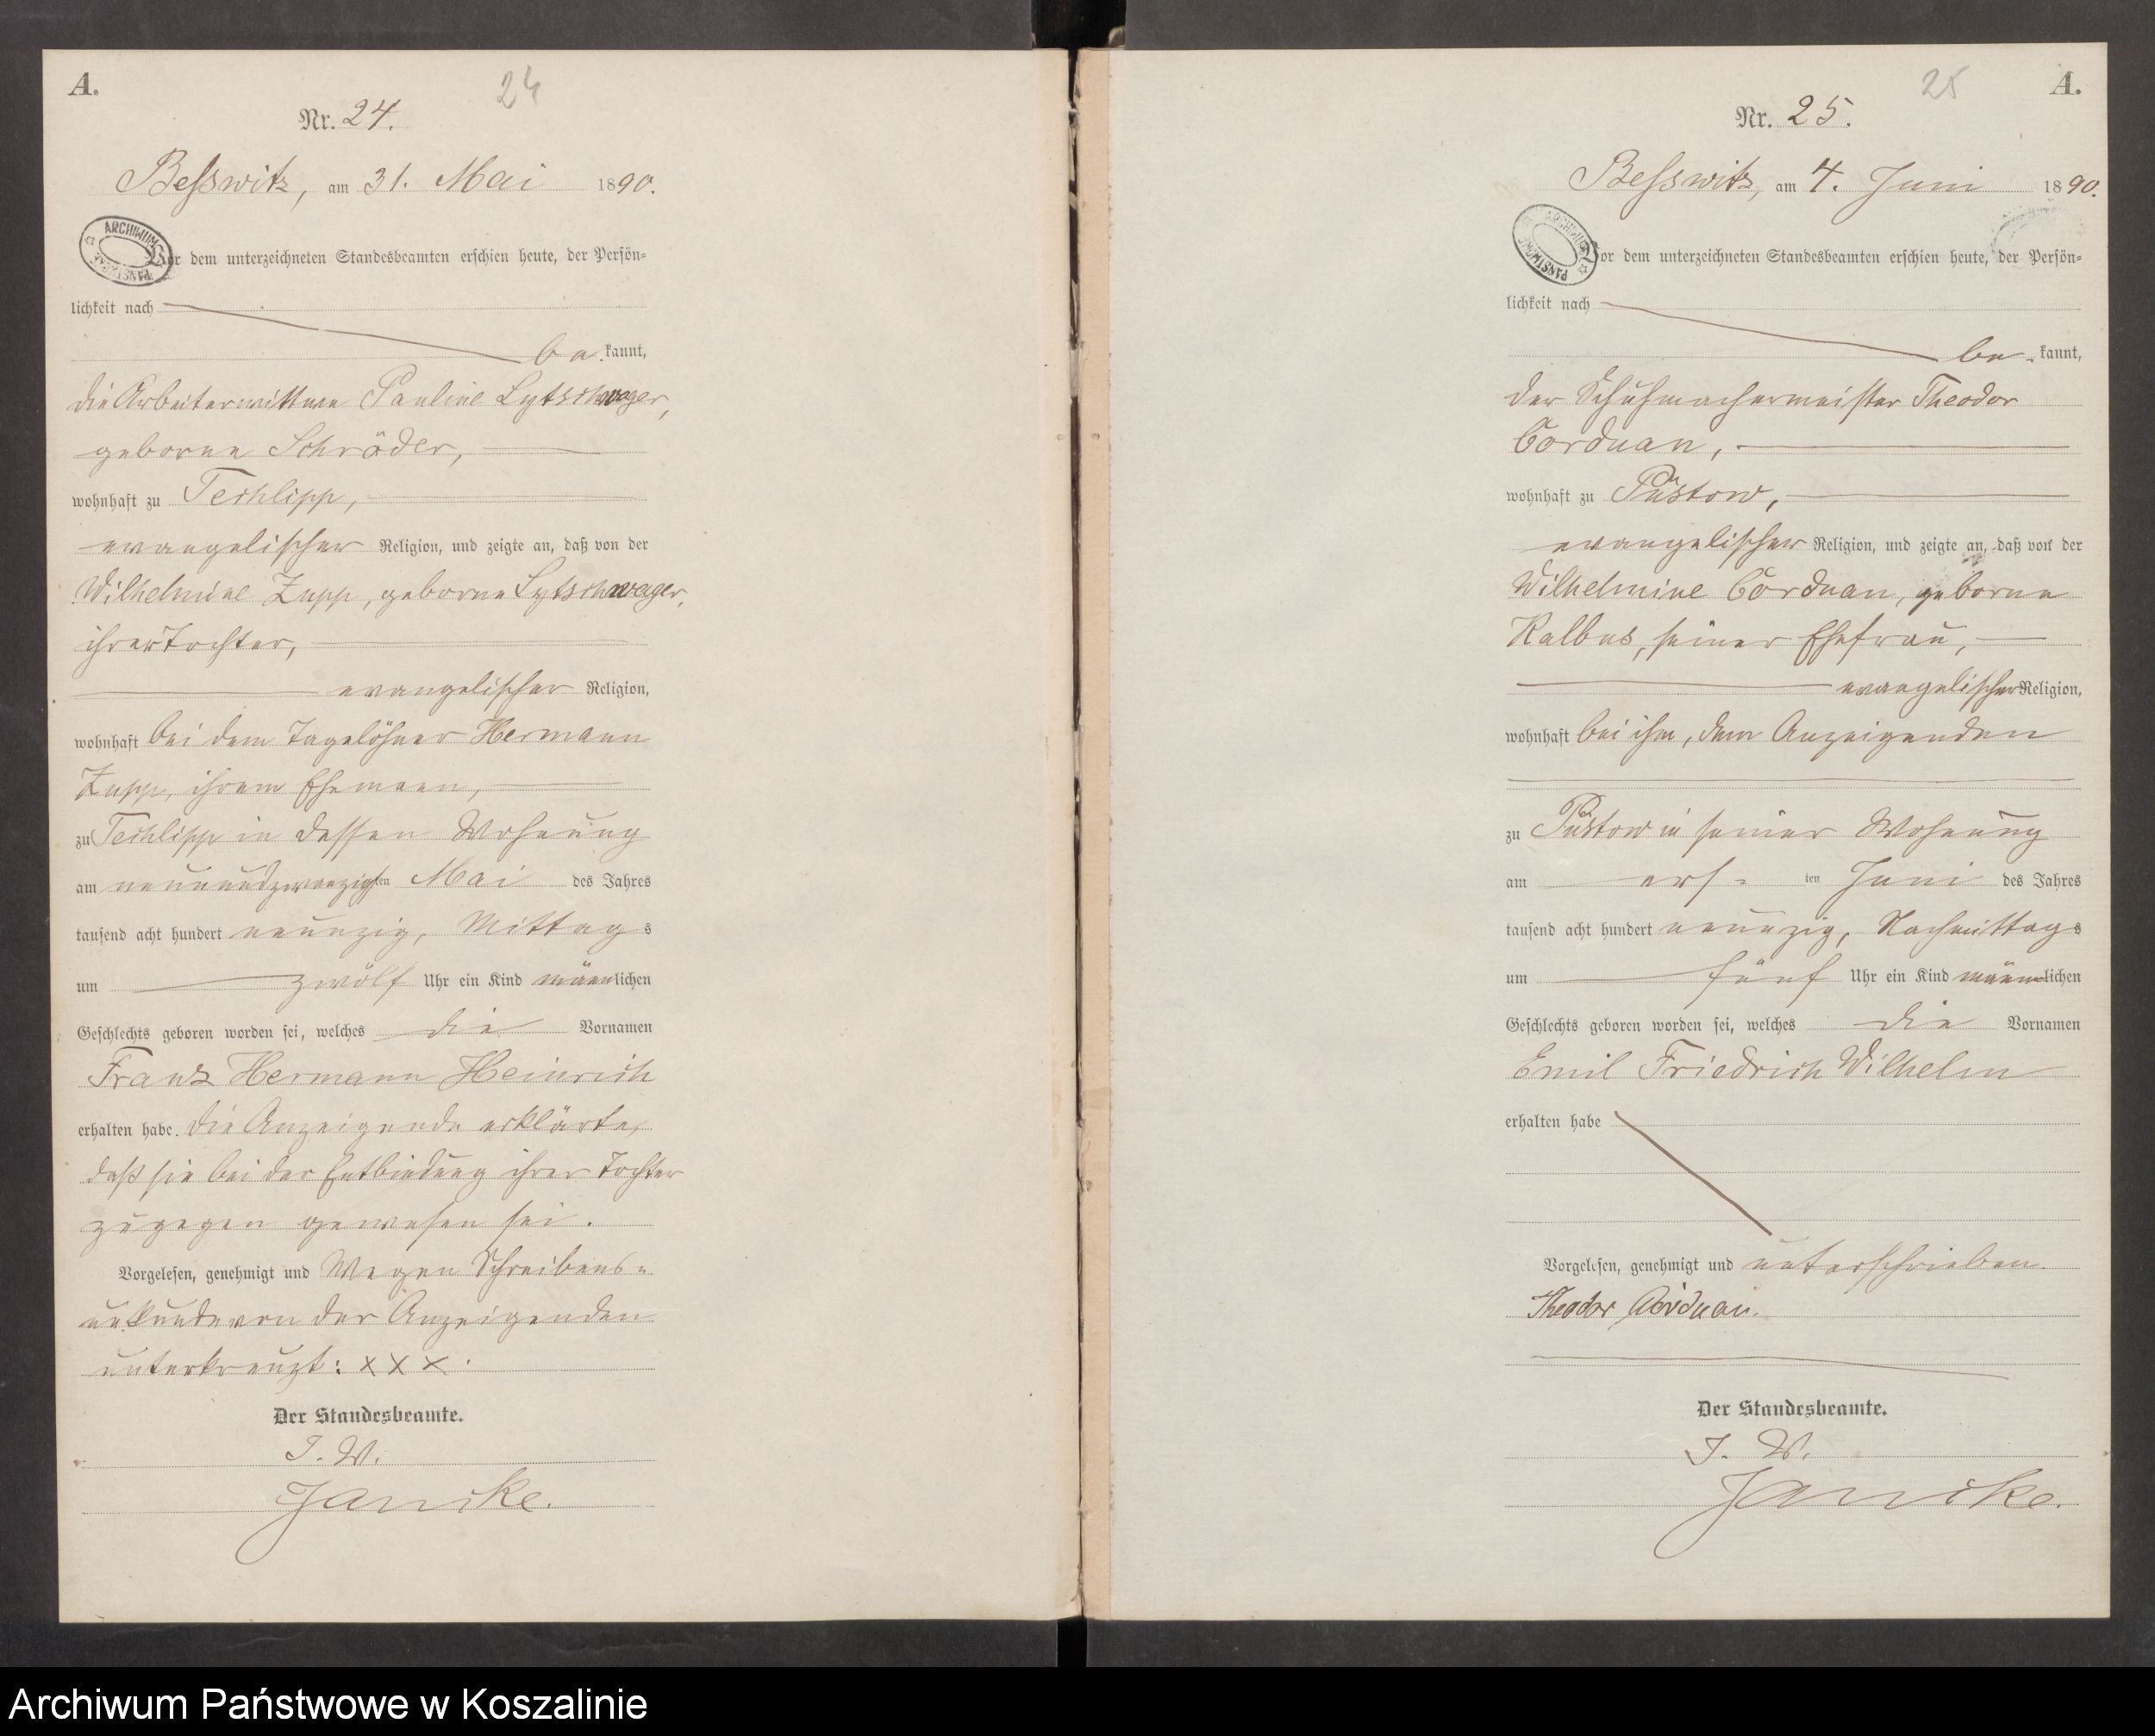 A.
24
Nr. 24.
Besswitz, am 31. Mai 1890.
ARCHIWUM PAŃSTWOWE
Vor dem unterzeichneten Standesbeamten erschien heute, der Persön-
lichkeit nach
be kannt,
die Arbeiterwittwe Pauline Lytschwager,
geborne Schröder,
wohnhaft zu Techlipp,
evangelischer Religion, und zeigte an, daß von der
Wilhelmine Zupp, geborne Lytschwager,
ihrer Tochter,
evangelischer Religion,
wohnhaft bei dem Tagelöhner Hermann
Zupp, ihrem Ehemann,
zu Techlipp in dessen Wohnung
am neunundzwanzigsten Mai des Jahres
tausend acht hundert neunzig, Mittags
um zwölf Uhr ein Kind männlichen
Geschlechts geboren worden sei, welches die Vornamen
Franz Hermann Heinrich
erhalten habe. Die Anzeigende erklärte,
daß sie bei der Entbindung ihrer Tochter
zugegen gewesen sei.
Vorgelesen, genehmigt und Wegen Schreibens-
unkunde von der Anzeigenden
unterkreuzt: x x x.
Der Standesbeamte.
J. W.
Jancke.
25
A.
Nr. 25.
Besswitz, am 4. Juni 1890.
ARCHIWUM PAŃSTWOWE
Vor dem unterzeichneten Standesbeamten erschien heute, der Persön-
lichkeit nach
be kannt,
der Schuhmachermeister Theodor
Corduan,
wohnhaft zu Püstow,
evangelischer Religion, und zeigte an, daß von der
Wilhelmine Corduan, geborne
Kalbus, seiner Ehefrau,
evangelischer Religion,
wohnhaft bei ihm, dem Anzeigenden
zu Püstow in seiner Wohnung
am ers- ten Juni des Jahres
tausend acht hundert neunzig, Nachmittags
um fünf Uhr ein Kind männlichen
Geschlechts geboren worden sei, welches die Vornamen
Emil Friedrich Wilhelm
erhalten habe
Vorgelesen, genehmigt und unterschrieben.
Theodor Corduan.
Der Standesbeamte.
J. W.
Jancke.
Archiwum Państwowe w Koszalinie